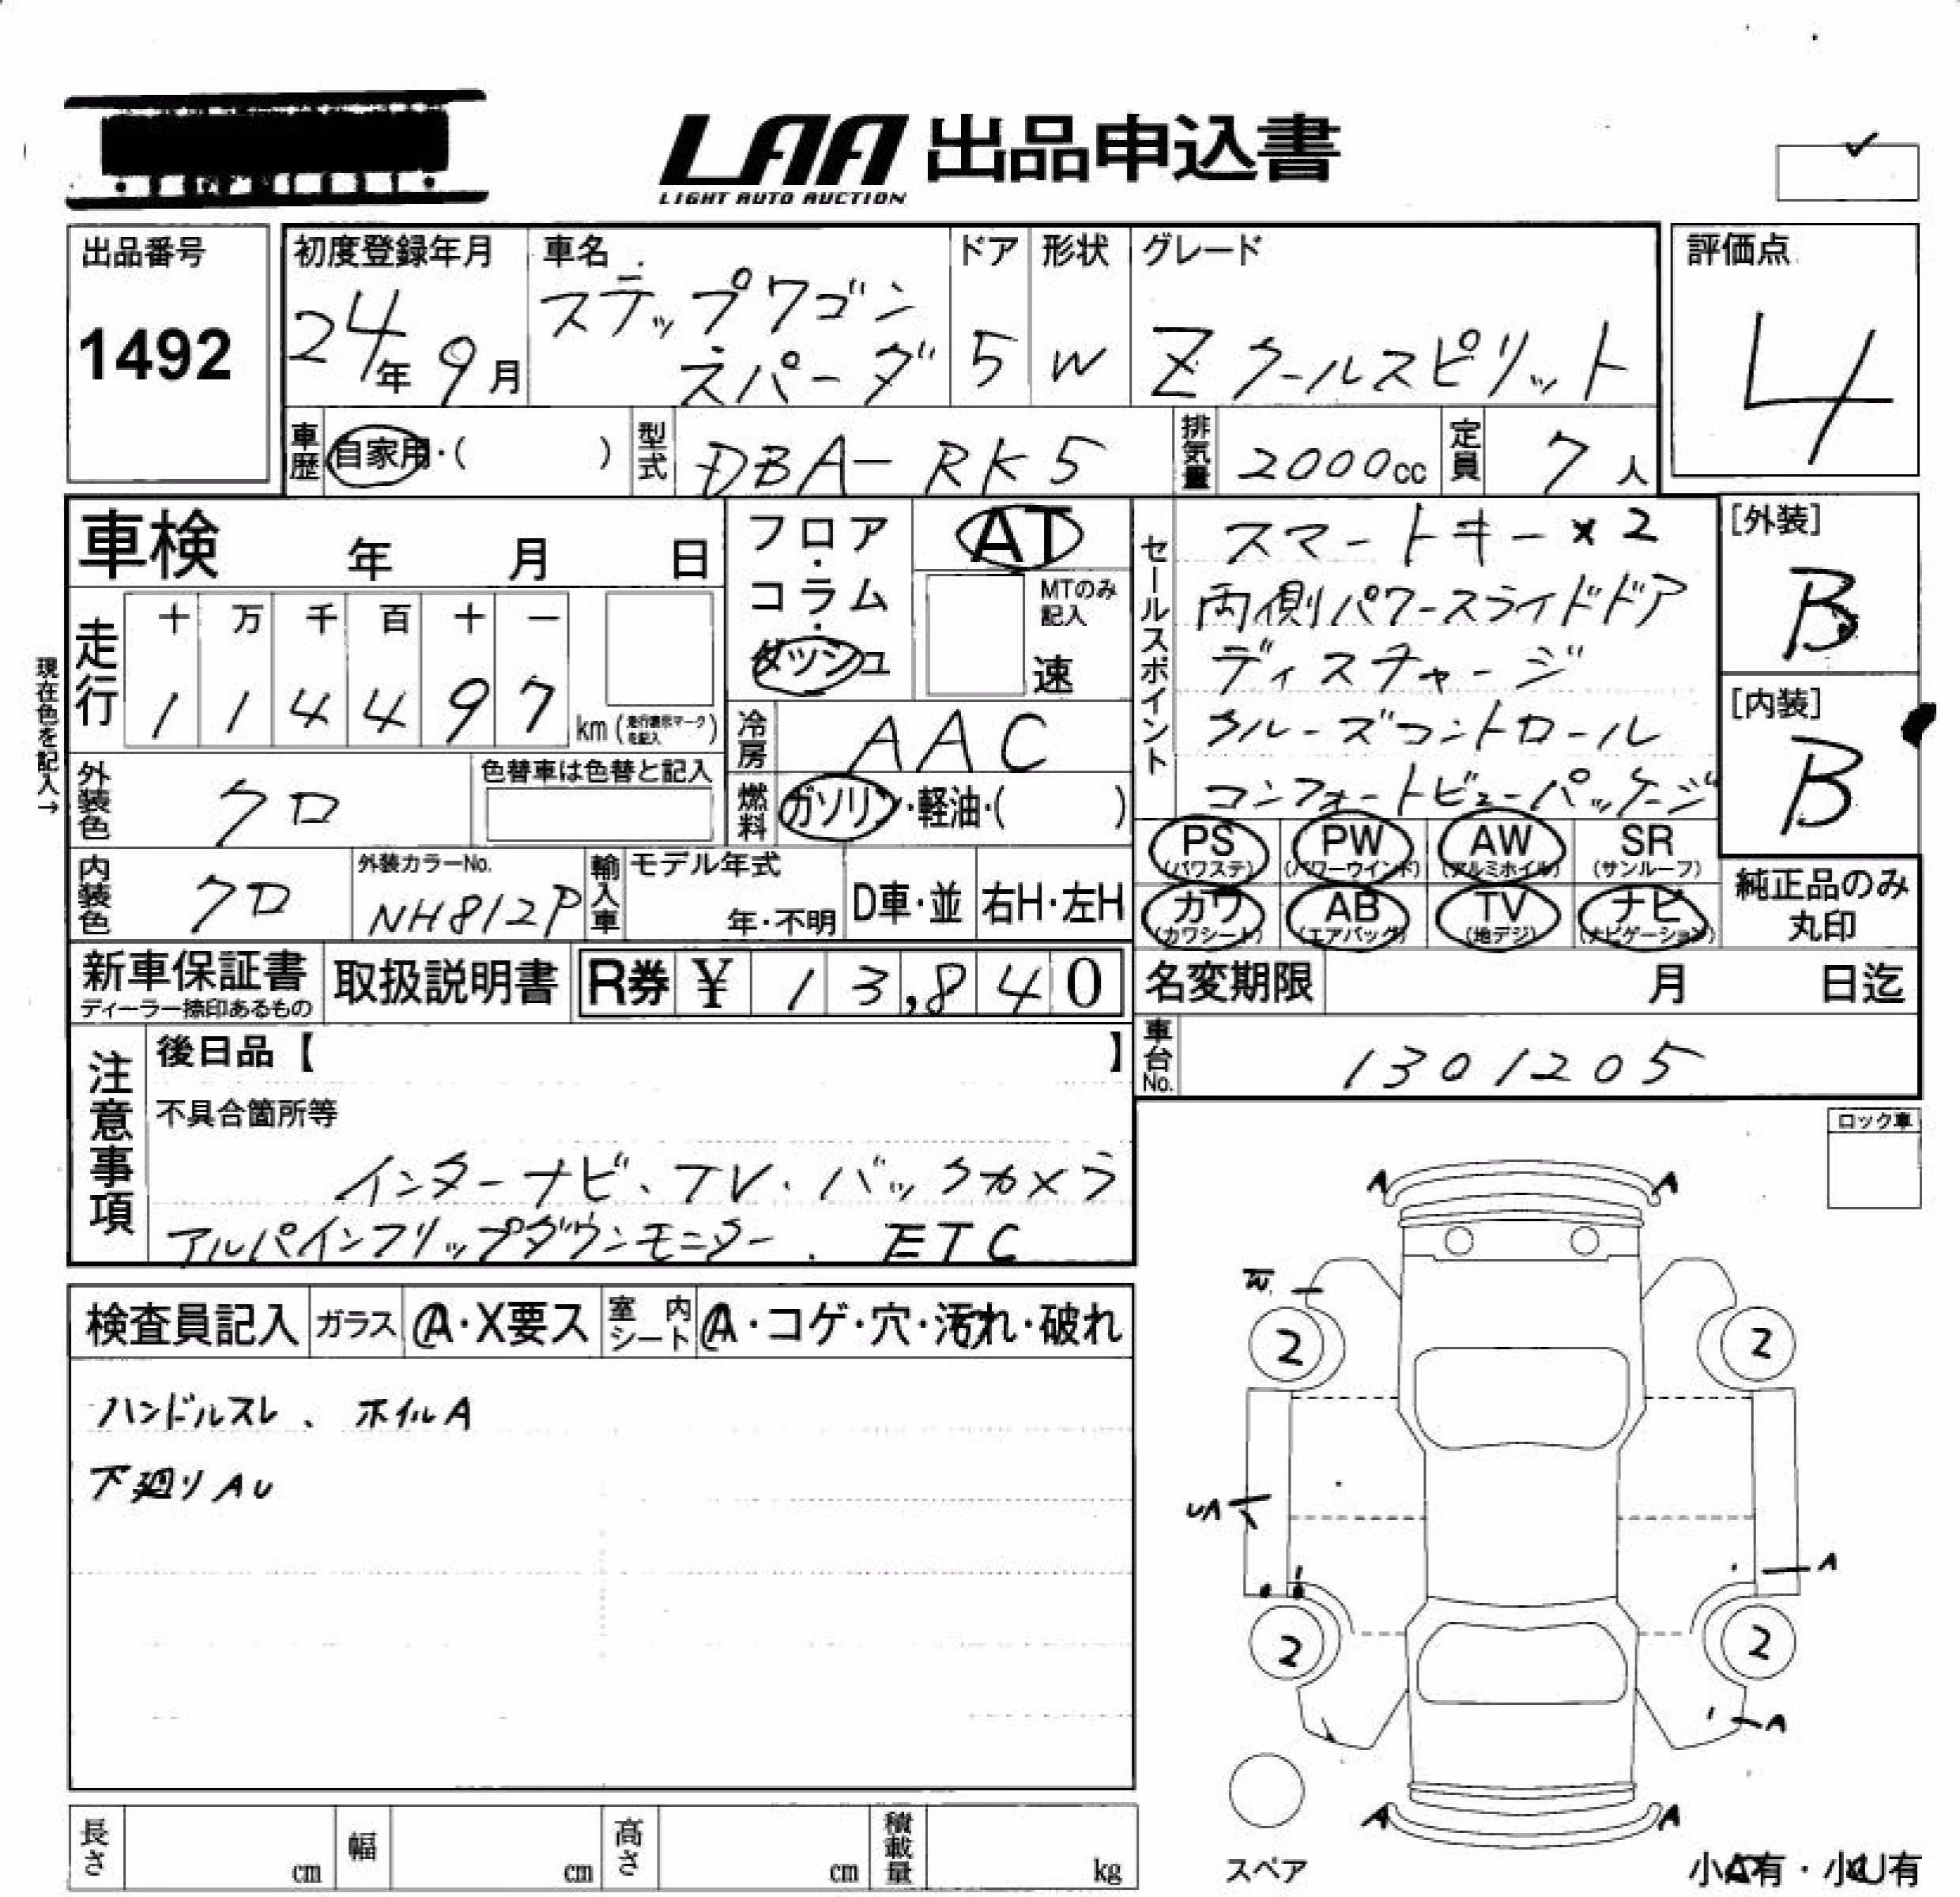 LAA 出品申込書
LIGHT AUTO AUCTION
出品番号
1492
初度登録年月
24年 9月
車名
ステップワゴン
スパーダ
ドア
5
形状
W
グレード
Z クールスピリット
評価点
4
車歴 自家用・( )
型式 DBA-RK5
排気量 2000cc
定員 7人
車検 年 月 日
走行
十 万 千 百 十 一
1 1 4 4 9 7 km (走行表示マークを記入)
現在色を記入→
外装色 クロ
色替車は色替と記入
内装色 クロ
外装カラーNo.
NH812P
フロア・コラム・ダッシュ
AT
MTのみ記入
速
冷房 AAC
燃料 ガソリン・軽油・( )
輸入車
モデル年式
年・不明
D車・並
右H・左H
セールスポイント
スマートキー×2
両側パワースライドドア
ディスチャージ
クルーズコントロール
コンフォートビューパッケージ
[外装]
B
[内装]
B
PS (パワステ) PW (パワーウインド) AW (アルミホイル) SR (サンルーフ)
カワ (カワシート) AB (エアバッグ) TV (地デジ) ナビ (ナビゲーション)
純正品のみ
丸印
新車保証書
ディーラー捺印あるもの
取扱説明書
R券 ¥ 13,840
名変期限 月 日迄
車台No. 1301205
注意事項
後日品【 】
不具合箇所等
インターナビ、TV、バックカメラ
アルパインフリップダウンモニター、ETC
検査員記入 ガラス A・X要ス 室内シート A・コゲ・穴・汚れ・破れ
ハンドルスレ、ホイルA
下廻りAU
ロック車
A A
W
2 2
UA
A
2 2
A
A A
スペア
小A有・小U有
長さ cm 幅 cm 高さ cm 積載量 kg